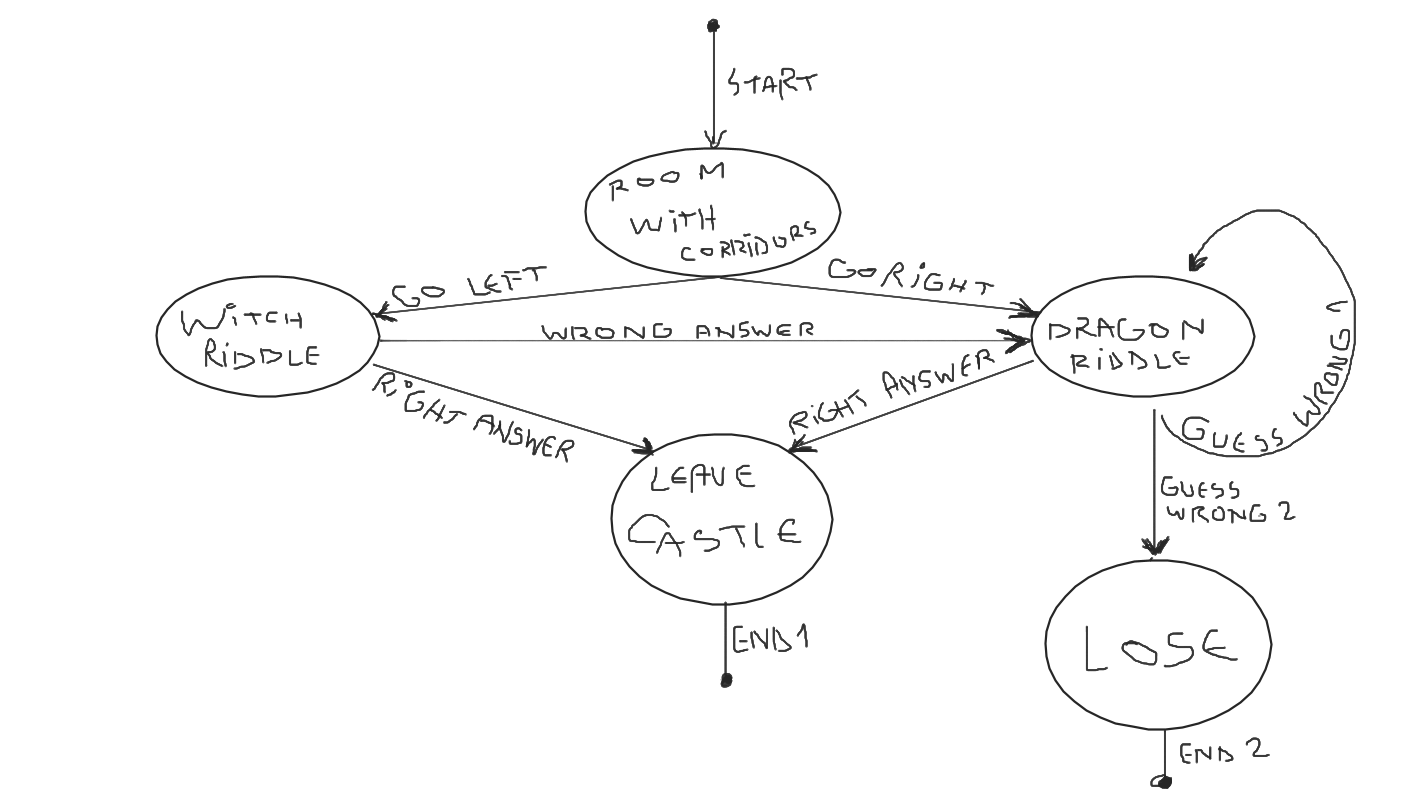 START
ROOM
WITH
CORRIDORS
GO LEFT
GO RIGHT
WITCH
RIDDLE
WRONG ANSWER
DRAGON
RIDDLE
RIGHT ANSWER
RIGHT ANSWER
GUESS WRONG 1
LEAVE
CASTLE
GUESS
WRONG 2
END 1
LOSE
END 2